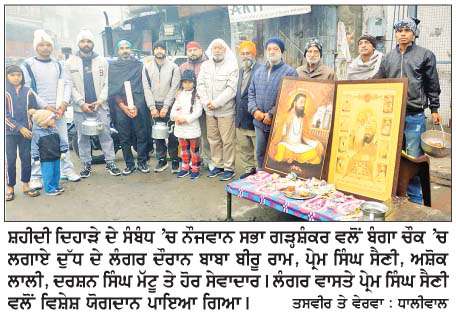 ਸ਼ਹੀਦੀ ਦਿਹਾੜੇ ਦੇ ਸੰਬੰਧ ’ਚ ਨੌਜਵਾਨ ਸਭਾ ਗੜ੍ਹਸ਼ੰਕਰ ਵਲੋਂ ਬੰਗਾ ਚੌਕ ’ਚ
ਲਗਾਏ ਦੁੱਧ ਦੇ ਲੰਗਰ ਦੌਰਾਨ ਬਾਬਾ ਬੀਰੂ ਰਾਮ, ਪ੍ਰੇਮ ਸਿੰਘ ਸੈਣੀ, ਅਸ਼ੋਕ
ਲਾਲੀ, ਦਰਸ਼ਨ ਸਿੰਘ ਮੱਟੂ ਤੇ ਹੋਰ ਸੇਵਾਦਾਰ। ਲੰਗਰ ਵਾਸਤੇ ਪ੍ਰੇਮ ਸਿੰਘ ਸੈਣੀ
ਵਲੋਂ ਵਿਸ਼ੇਸ਼ ਯੋਗਦਾਨ ਪਾਇਆ ਗਿਆ। ਤਸਵੀਰ ਤੇ ਵੇਰਵਾ : ਧਾਲੀਵਾਲ